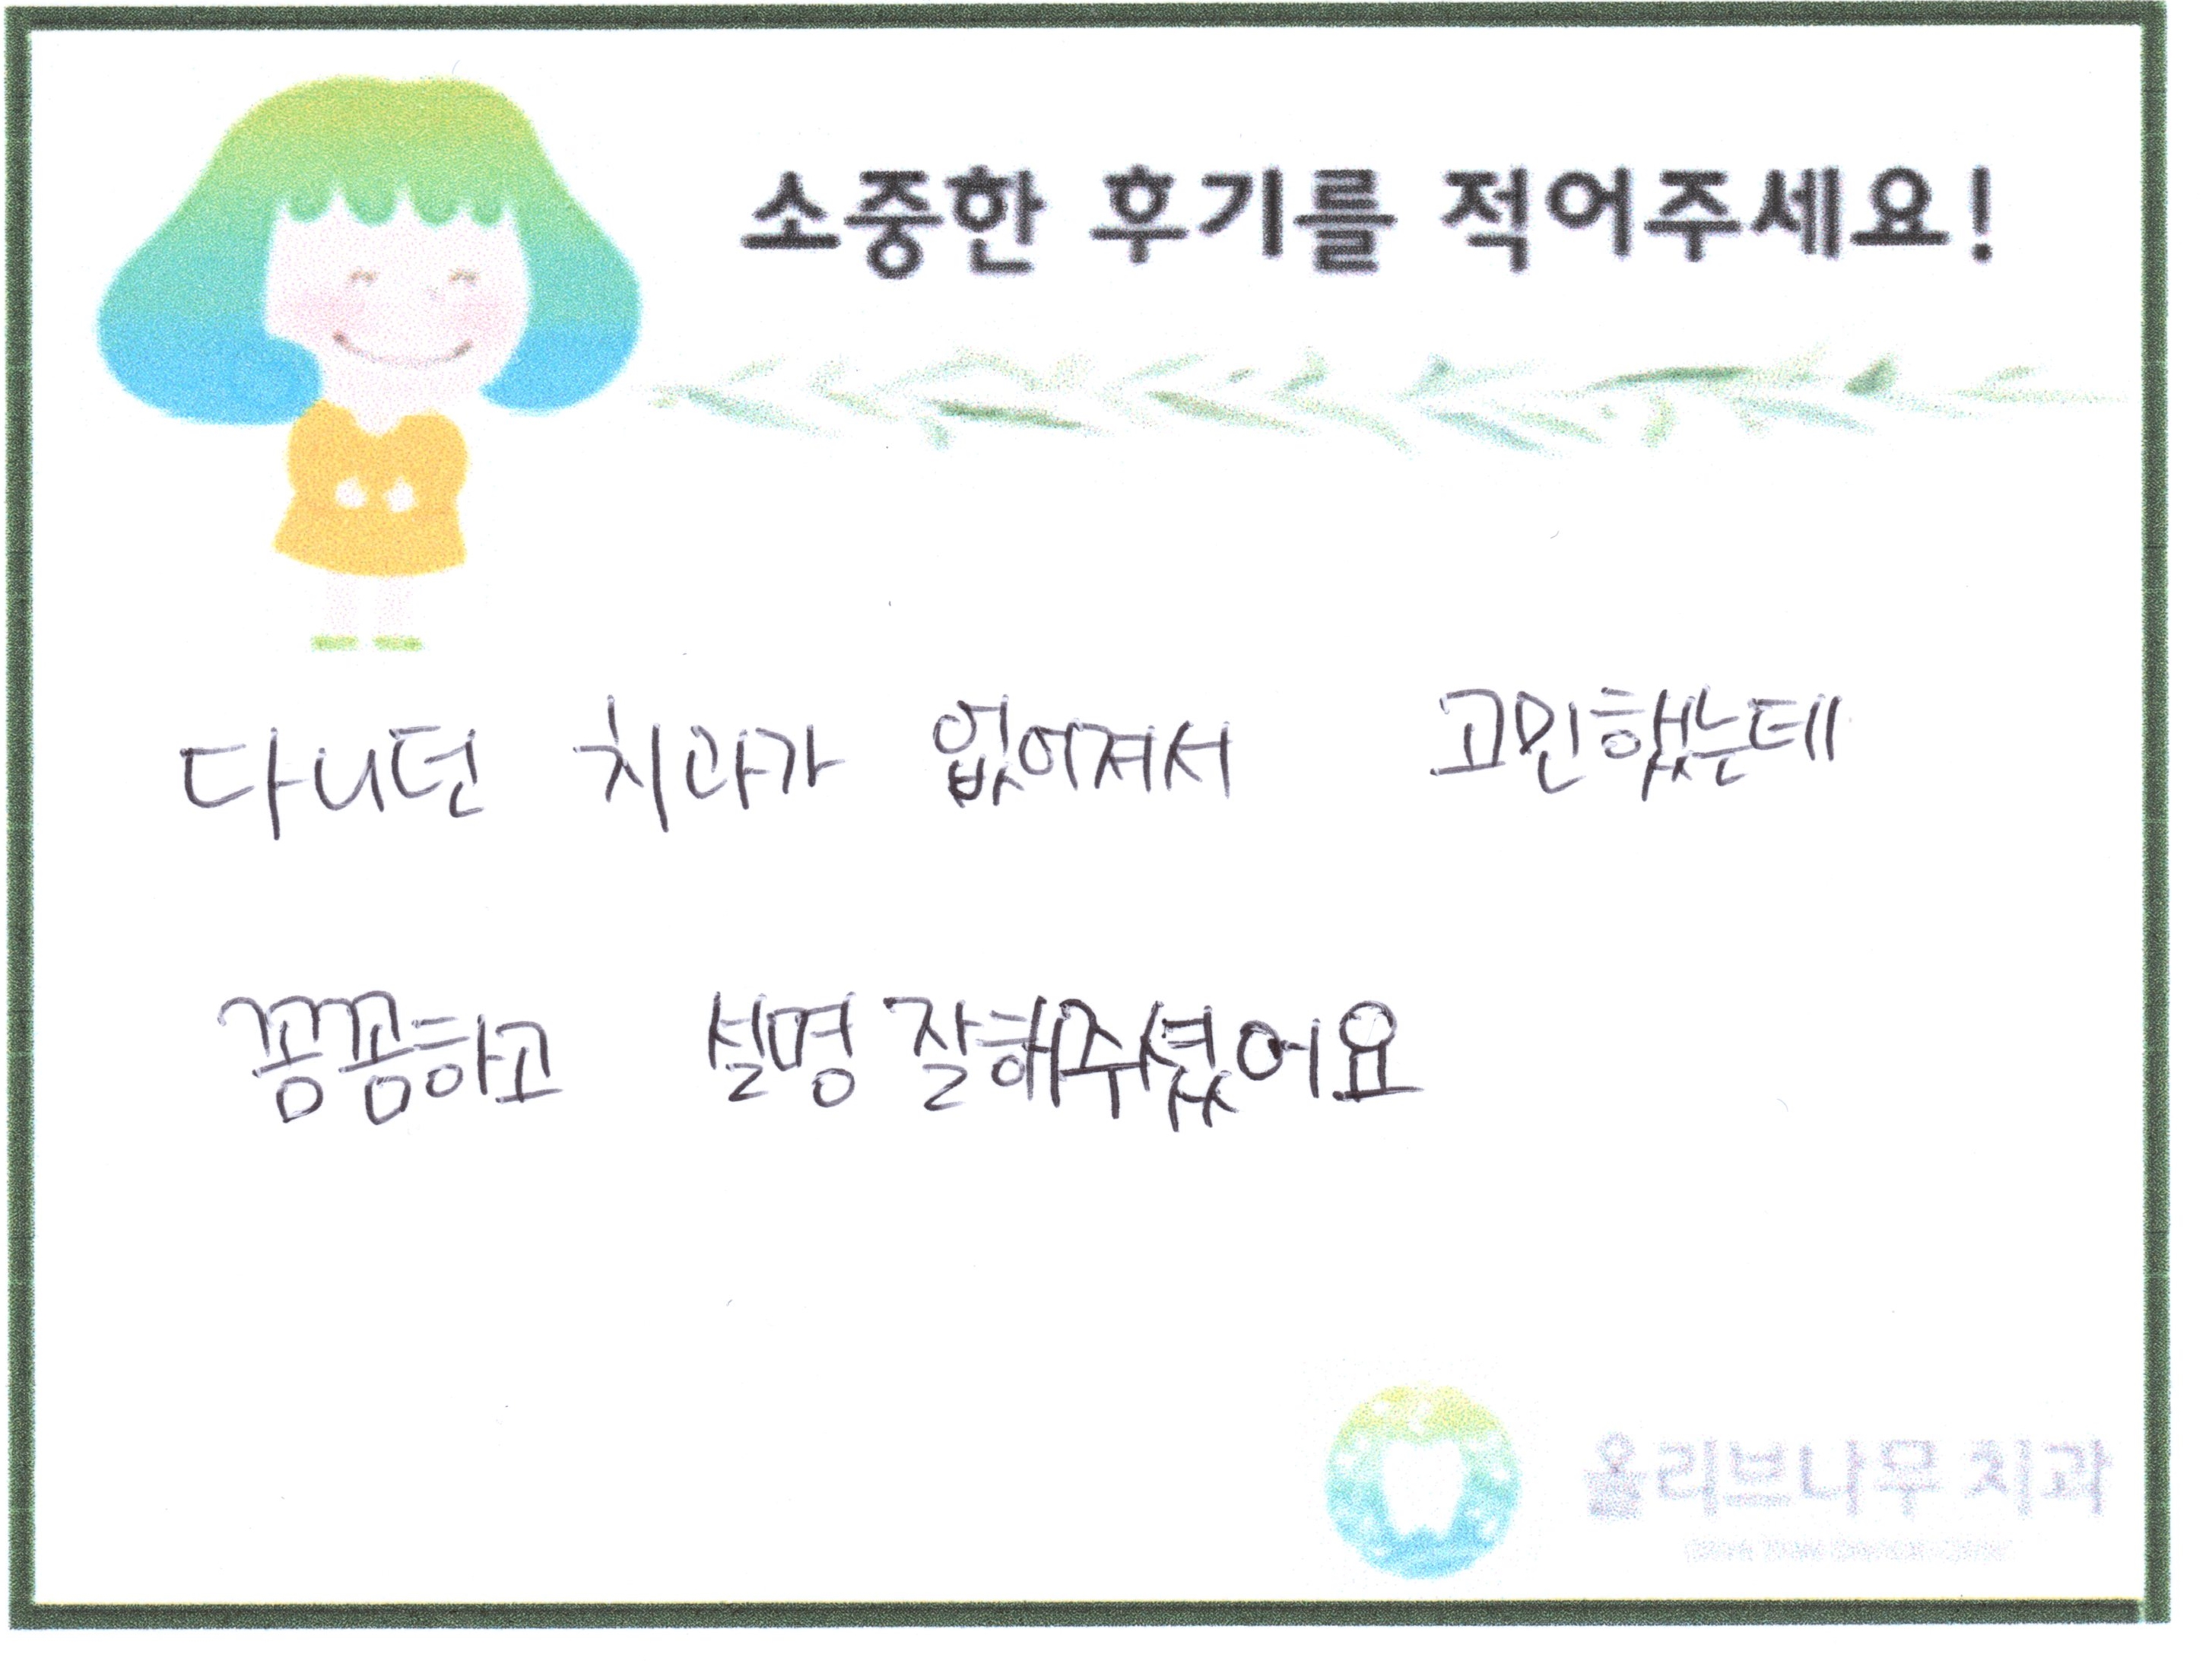 소중한 후기를 적어주세요!
다니던 치과가 없어져서 고민했는데
꼼꼼하고 설명 잘해주셨어요
올리브나무 치과